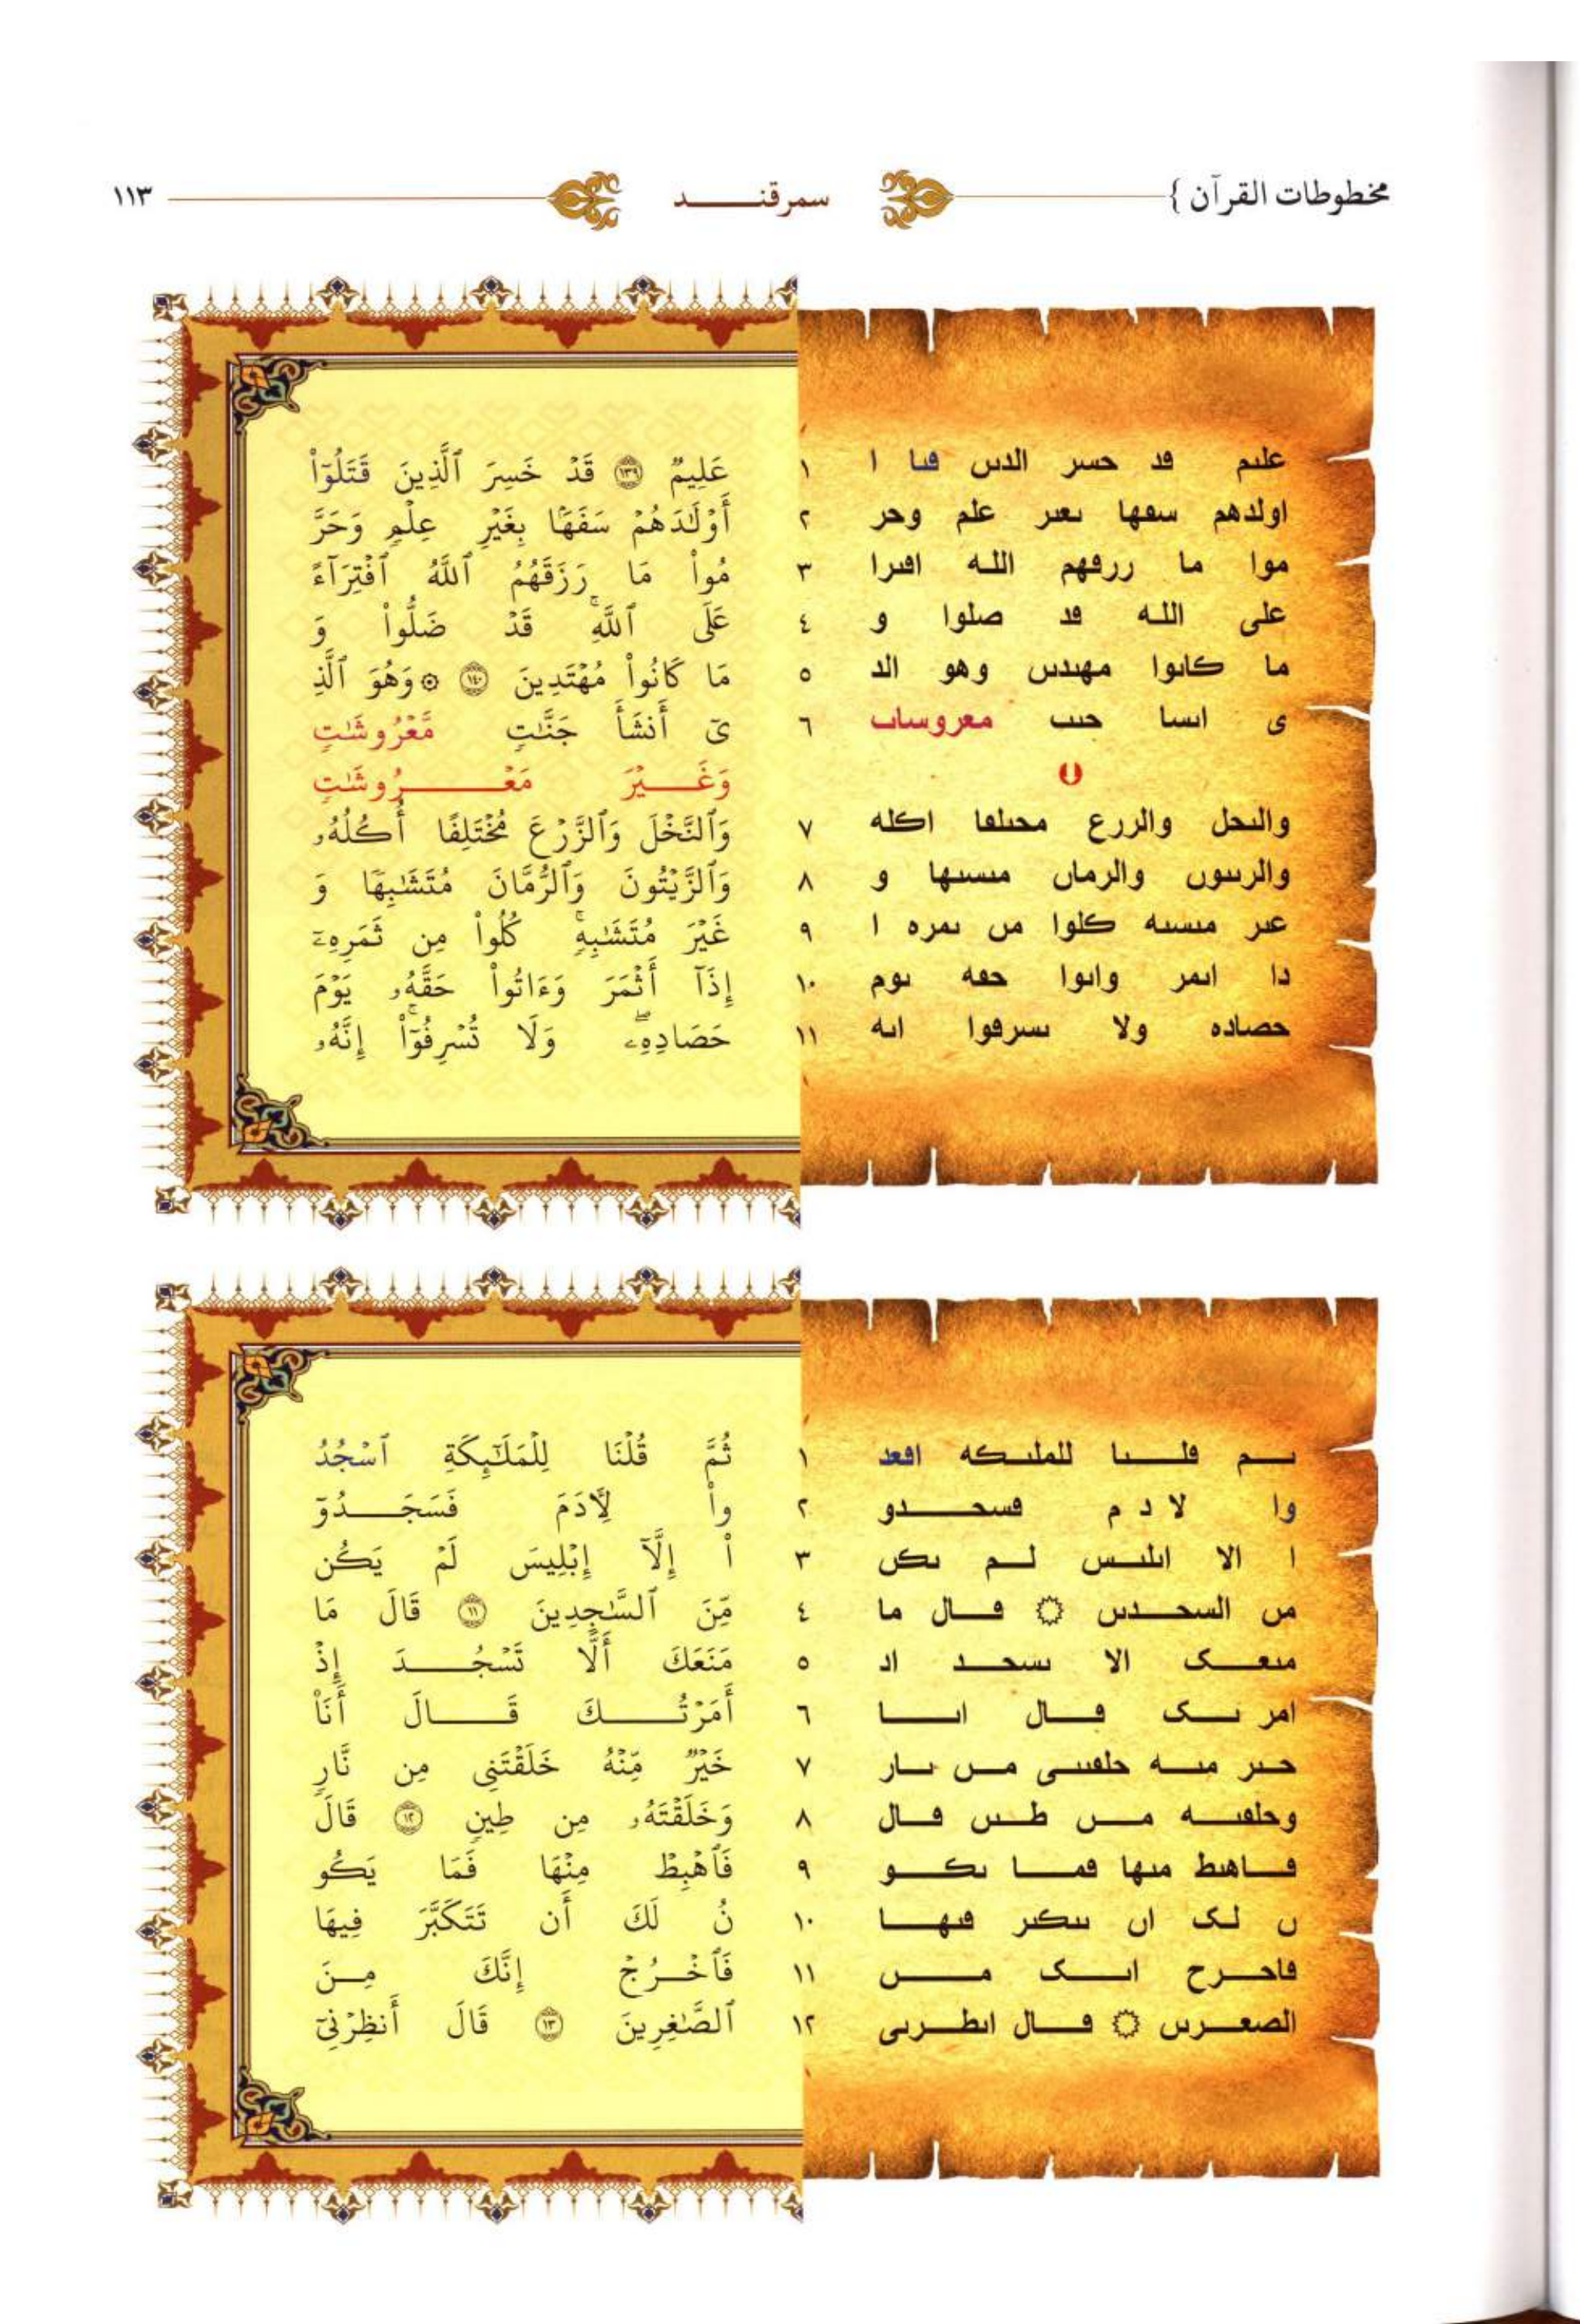 مخطوطات القرآن } سمرقنــــد ١١٣
علىم ڡد حسر الدىں ڡىا ا ١
اولدهم سڡها ىعىر علم وحر ٢
موا ما ررڡهم الله اڡىرا ٣
على الله ڡد صلوا و ٤
ما كاىوا مهىدىں وهو الد ٥
ى اىسا حىٮ معروساٮ ٦
والىحل والررع محىلڡا اكله ٧
والرىىوں والرماں مىسىها و ٨
عىر مىسىه كلوا مں ىمره ا ٩
دا اىمر واىوا حڡه ىوم ١٠
حصاده ولا ىسرڡوا اىه ١١
عَلِيمٌ ١٣٩ قَدۡ خَسِرَ ٱلَّذِينَ قَتَلُوٓاْ
أَوۡلَٰدَهُمۡ سَفَهَۢا بِغَيۡرِ عِلۡمٖ وَحَرَّ
مُواْ مَا رَزَقَهُمُ ٱللَّهُ ٱفۡتِرَآءً
عَلَى ٱللَّهِۚ قَدۡ ضَلُّواْ وَ
مَا كَانُواْ مُهۡتَدِينَ ١٤٠ ۞ وَهُوَ ٱلَّذِ
يٓ أَنشَأَ جَنَّٰتٖ مَّعۡرُوشَٰتٖ
وَغَــيۡرَ مَعۡــرُوشَٰتٖ
وَٱلنَّخۡلَ وَٱلزَّرۡعَ مُخۡتَلِفًا أُكُلُهُۥ
وَٱلزَّيۡتُونَ وَٱلرُّمَّانَ مُتَشَٰبِهٗا وَ
غَيۡرَ مُتَشَٰبِهٖۚ كُلُواْ مِن ثَمَرِهِۦٓ
إِذَآ أَثۡمَرَ وَءَاتُواْ حَقَّهُۥ يَوۡمَ
حَصَادِهِۦۖ وَلَا تُسۡرِفُوٓاْۚ إِنَّهُۥ
ىــم ڡلــىا للملىكه اڡعد ١
وا لا د م ڡسحــدو ٢
ا الا اىلىس لــم ىكں ٣
مں السحــدىں ۞ ڡــال ما ٤
مىعــک الا ىسحــد اد ٥
امر ىــک ڡــال اىــا ٦
حــىر مىــه حلڡىــى مــں ىــار ٧
وحلڡىــه مــں طــىں ڡــال ٨
ڡــاهىط مىها ڡمــا ىكــو ٩
ں لــک اں ىىكىر ڡىهــا ١٠
ڡاحــرح اىــک مــں ١١
الصعــرىں ۞ ڡــال اىطــرىى ١٢
ثُمَّ قُلۡنَا لِلۡمَلَٰٓئِكَةِ ٱسۡجُدُ
واْ لِأٓدَمَ فَسَجَــدُوٓ
اْ إِلَّآ إِبۡلِيسَ لَمۡ يَكُن
مِّنَ ٱلسَّٰجِدِينَ ١١ قَالَ مَا
مَنَعَكَ أَلَّا تَسۡجُــدَ إِذۡ
أَمَرۡتُــكَ قَــالَ أَنَا۠
خَيۡرٞ مِّنۡهُ خَلَقۡتَنِي مِن نَّارٖ
وَخَلَقۡتَهُۥ مِن طِينٖ ١٢ قَالَ
فَٱهۡبِطۡ مِنۡهَا فَمَا يَكُو
نُ لَكَ أَن تَتَكَبَّرَ فِيهَا
فَٱخۡــرُجۡ إِنَّكَ مِــنَ
ٱلصَّٰغِرِينَ ١٣ قَالَ أَنظِرۡنِيٓ